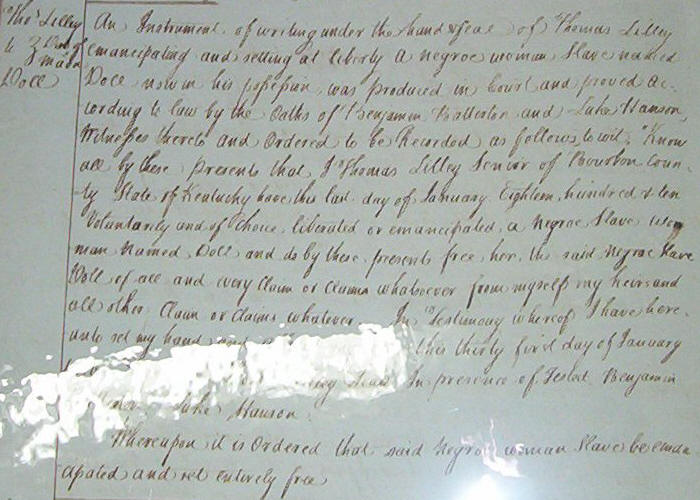 Thos Lilley
to } Deed of
} man
Doll
An Instrument of writing under the hand & seal of Thomas Lilley
emancipating and setting at liberty a negroe woman Slave named
Doll now in his possession was produced in Court and proved ac-
cording to law by the Oaths of Benjamin Batterton and Luke Hanson,
Witnesses thereto and ordered to be Recorded as follows, to wit, "Know
all by these presents that I Thomas Lilley Senior of Bourbon coun-
ty State of Kentucky have this last day of January Eighteen hundred & ten
Voluntarily and of Choice, liberated or emancipated, a Negroe Slave wo-
man Named Doll and do by these presents free her, the said Negroe Slave
Doll of all and every Claim or Claims whatsoever from myself my heirs and
all other Claim or Claims whatever. In Testimony whereof I have here-
unto set my hand and this thirty first day of January
In presence of Testat Benjamin
Luke Hanson.
Whereupon it is Ordered that said Negroe woman Slave be eman
cipated and set entirely free